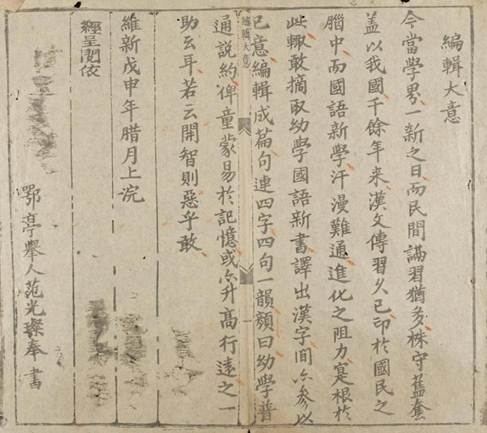 編輯大意
今當學界一新之日而民間講習猶多株守舊套
盖以我國千餘年来漢文傳習久已印於國民之
腦中而國語新學汗漫難通進化之阻力寔根於
此輙敢摘取幼學國語新書譯出漢字間亦参以
己意編輯成篇句連四字四句一韻顏曰幼學普
編輯大意
一
通説約俾童蒙易於記憶或亦升髙行遠之一
助云耳若云開智則惡乎敢
維新戊申年腊月上浣
經呈閲依
鄂亭舉人范光璨奉書